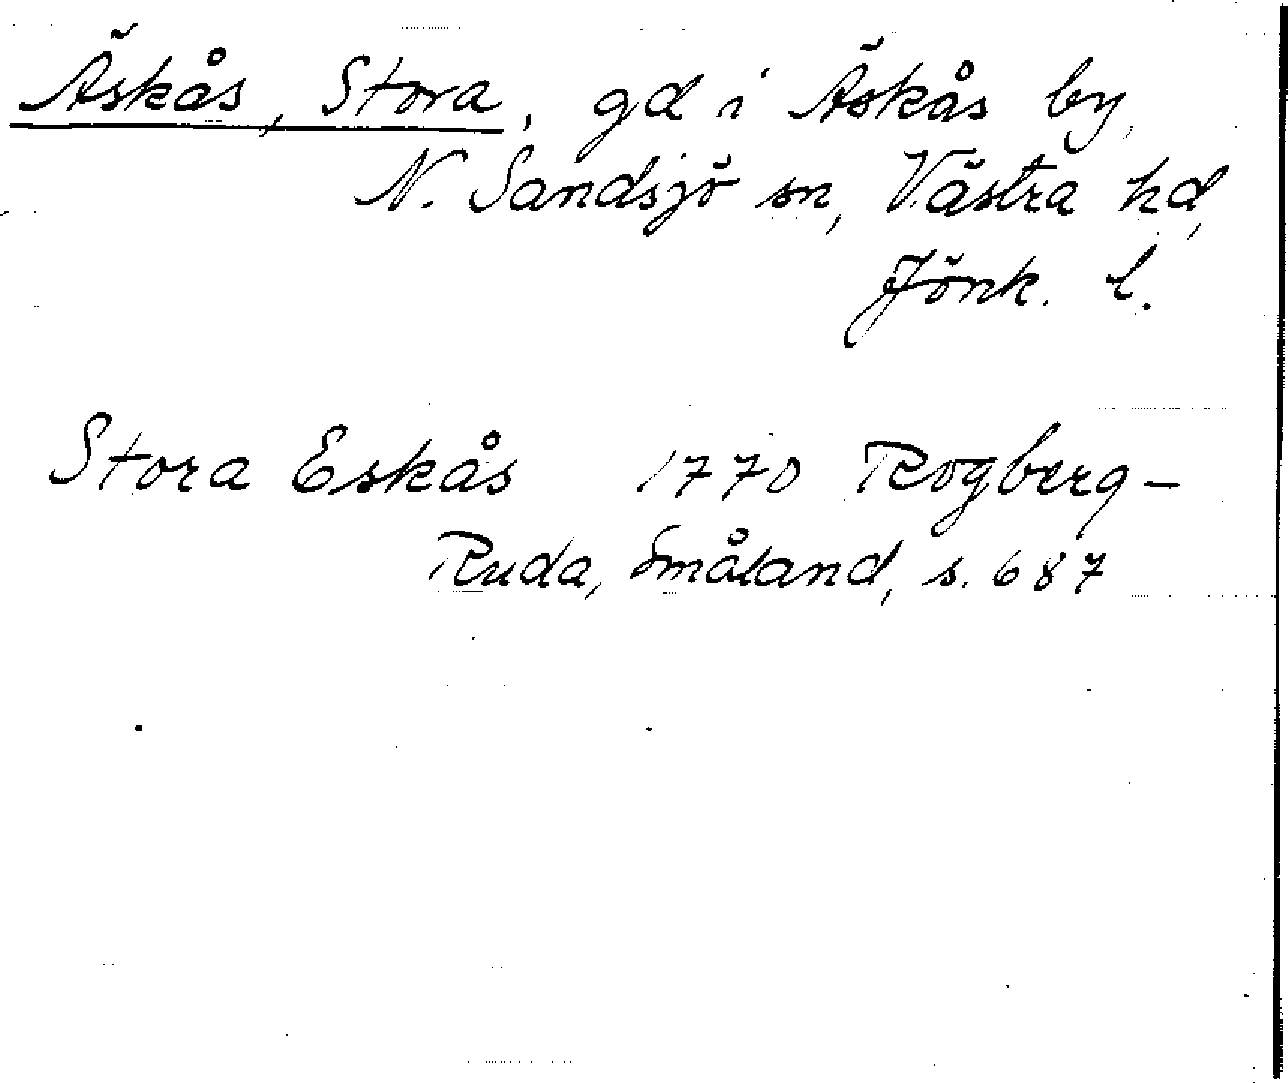 Äskås, Stora, gd i Äskås by,
N. Sandsjö sn, Västra hd,
Jönk. l.
Stora Eskås 1770 Rogberg-
Ruda, Småland, s. 687